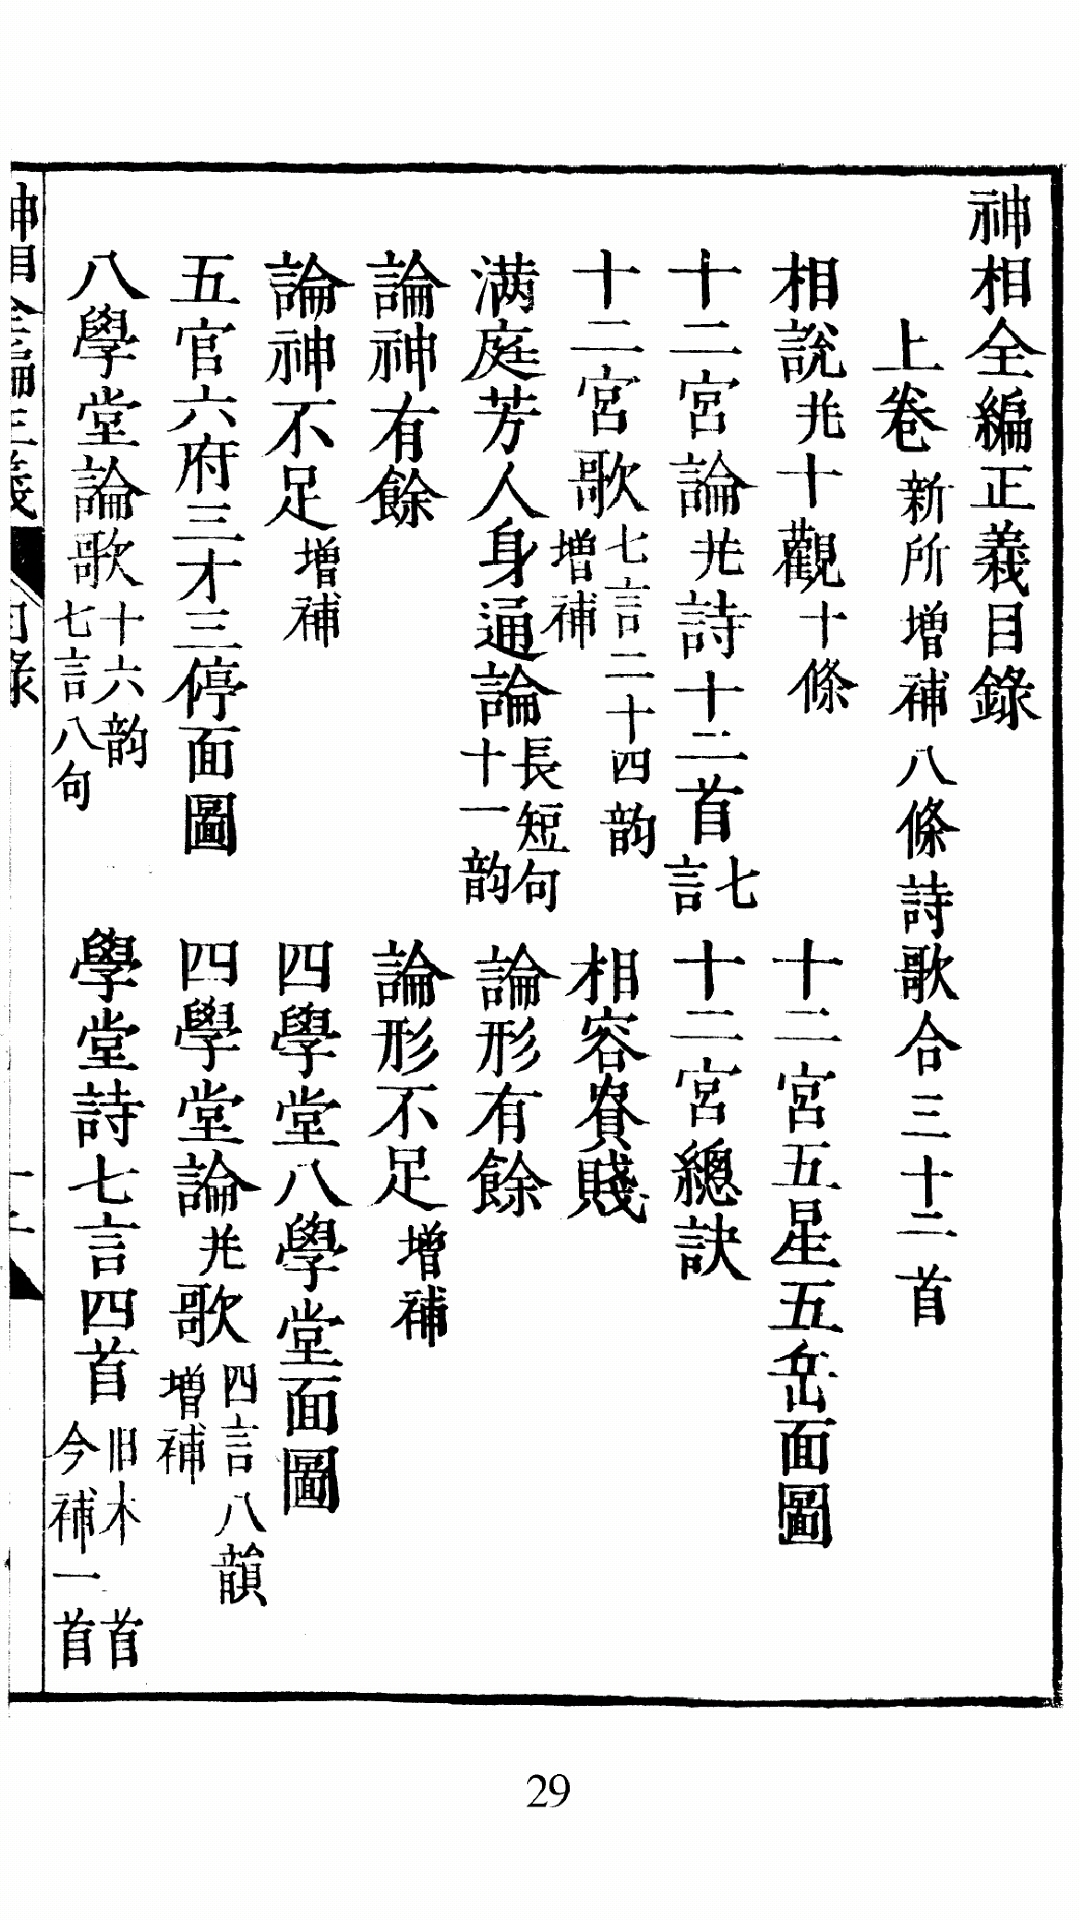 神相全編正義目錄
上卷 新所增補八條詩歌合三十二首
相說並十觀十條
十二宮五星五岳面圖
十二宮論並詩十二首七言
十二宮總訣
十二宮歌七言二十四韵增補
相容貴賤
满庭芳人身通論長短句十一韵
論形有餘
論神有餘
論形不足增補
論神不足增補
四學堂八學堂面圖
五官六府三才三停面圖
四學堂論並歌四言八韻增補
八學堂論歌十六韵七言八句
學堂詩七言四首旧本 首今補一首
神相全編正義
目錄
29